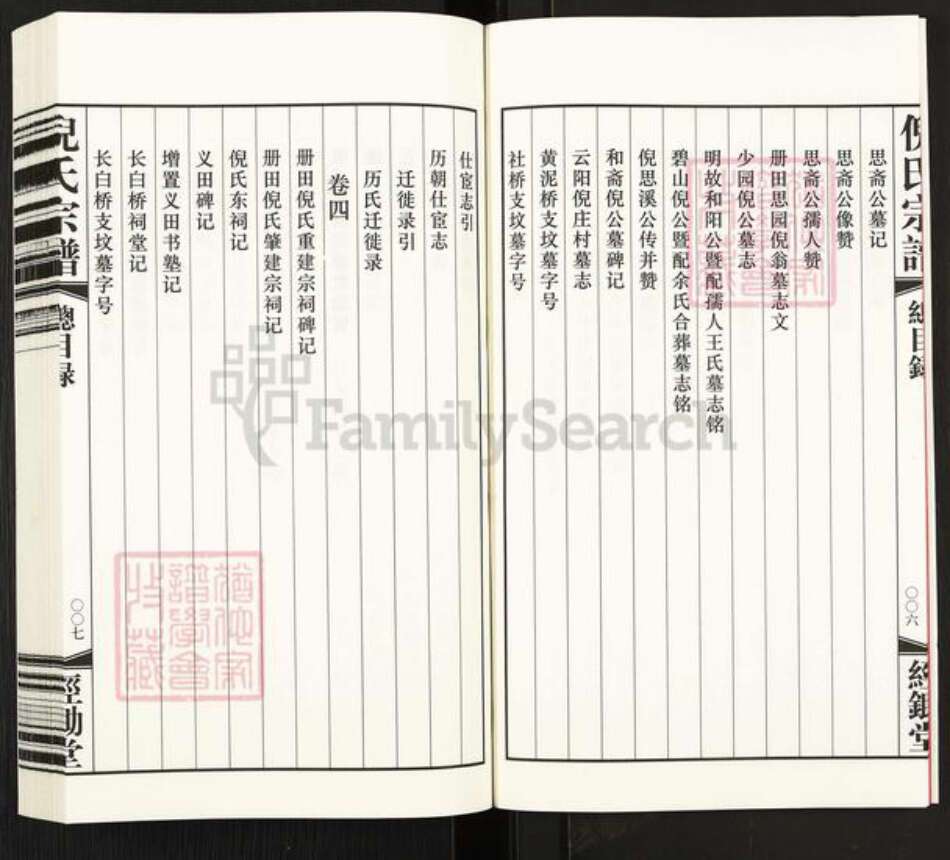 倪氏宗譜
總目錄
〇〇六
思斋公墓记
思斋公像赞
思斋公孺人赞
册田思园倪翁墓志文
少园倪公墓志
明故和阳公暨配孺人王氏墓志铭
碧山倪公暨配余氏合葬墓志铭
倪思溪公传并赞
和斋倪公墓碑记
云阳倪庄村墓志
黄泥桥支坟墓字号
社桥支坟墓字号
仕宦志引
历朝仕宦志
迁徙录引
历氏迁徙录
卷四
册田倪氏重建宗祠碑记
册田倪氏肇建宗祠记
倪氏东祠记
义田碑记
增置义田书塾记
长白桥祠堂记
长白桥支坟墓字号
倪氏宗譜
總目録
〇〇七
FamilySearch